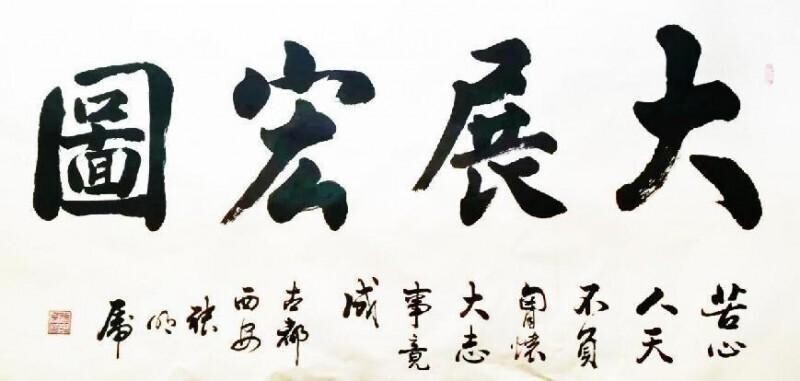 大展宏圖
苦心
人天
不負
胸懷
大志
事竟
成
古都
西安
張